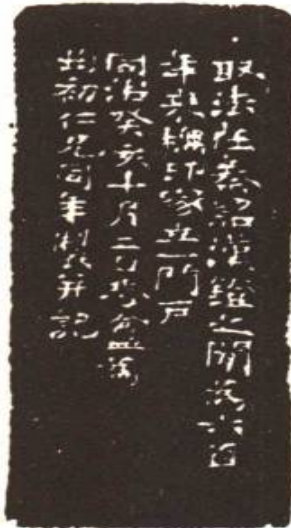 取法在秦詔漢鐙之間為六百
年來摹印家立一門戶
同治癸亥十月二日悲盦為
均初仁兄同年製并記